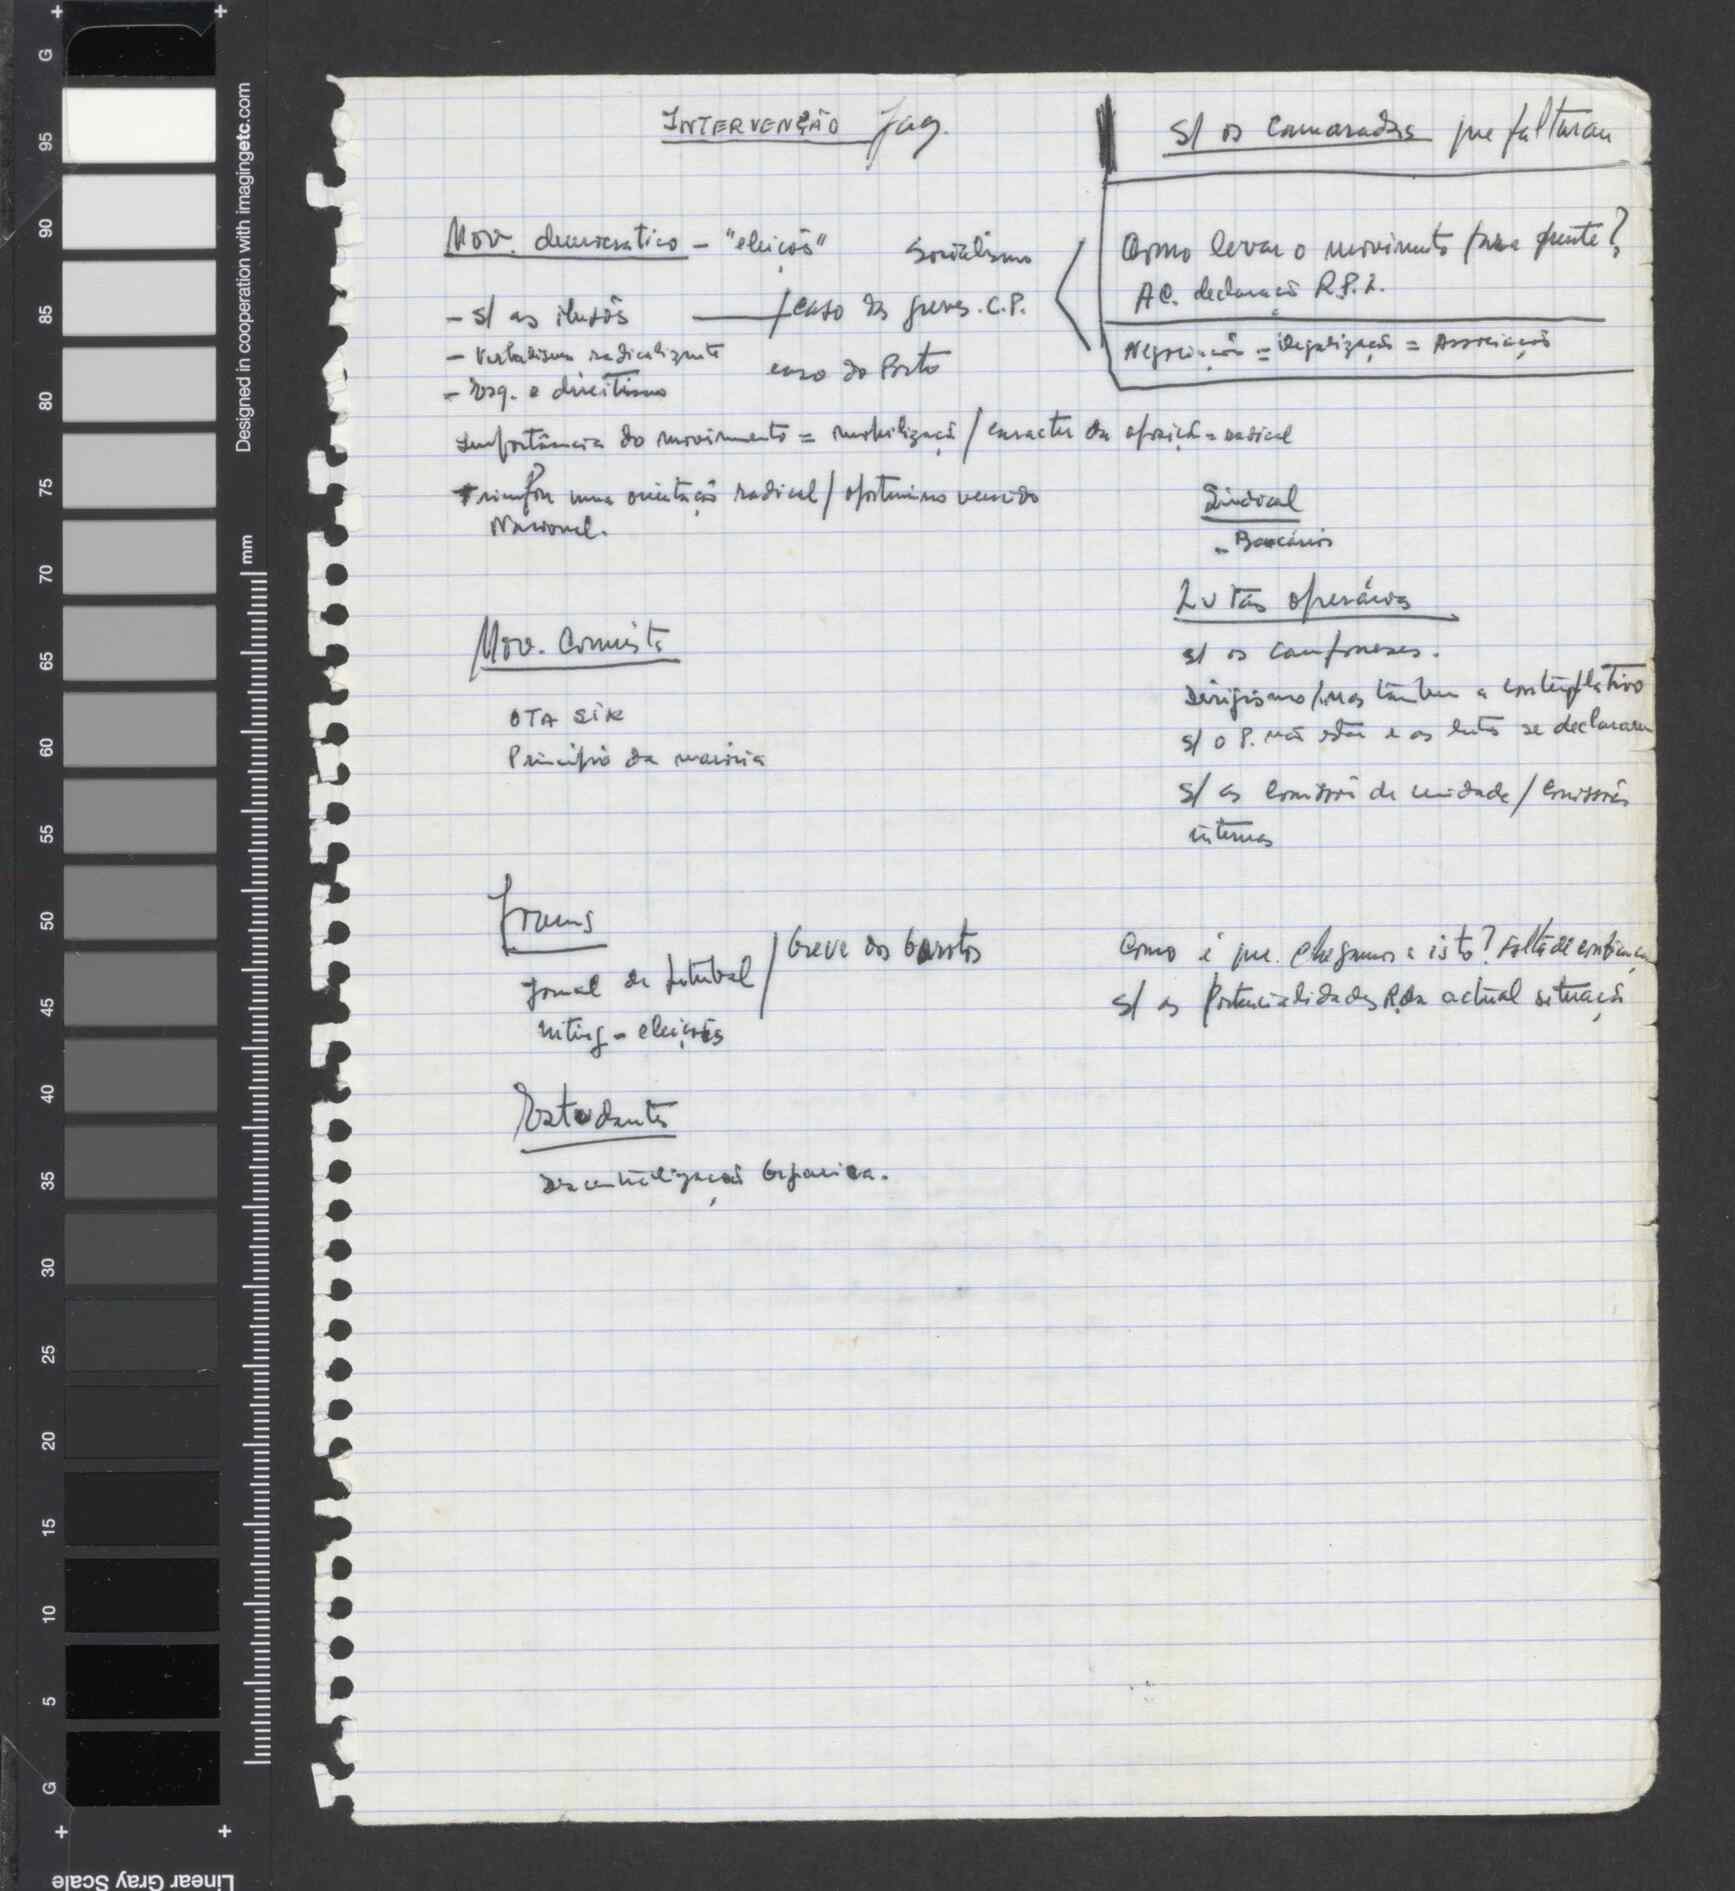 INTERVENÇÃO Jaq.
S/ os camaradas que faltaram
Mov. democratico - "eleições"
Socialismo
- s/ as ilusões
/ caso das greves. C.P.
- Verbalismo radicalizante
caso do Porto
- Esq. e direitismo
Como levar o movimento para frente?
AC. declaração R.P.L.
Negociação = ilegalização = Associação
Importância do movimento = mobilização / caracter da oposição = radical
Triunfou uma orientação radical / oportunismo vencido
Nacional.
Sindical
- Bancários
Lutas operárias
s/ os camponeses.
Dirigismo / mas tambem a contemplativo
s/ o P. não estar e as lutas se declararem
S/ as Comissões de unidade / Comissões
internas
Mov. Comista
OTA SIK
Principio da maioria
Jornal de Setubal / Greve dos Garotos
Miting - eleições
Como é que chegamos a isto? Falta de confiança
S/ as Potencialidades R. da actual situação
Estudantes
Descentralização Organica.
G
95
90
85
80
75
70
65
60
55
50
45
40
35
30
25
20
15
10
5
G
Designed in cooperation with imagingetc.com
mm
Linear Gray Scale